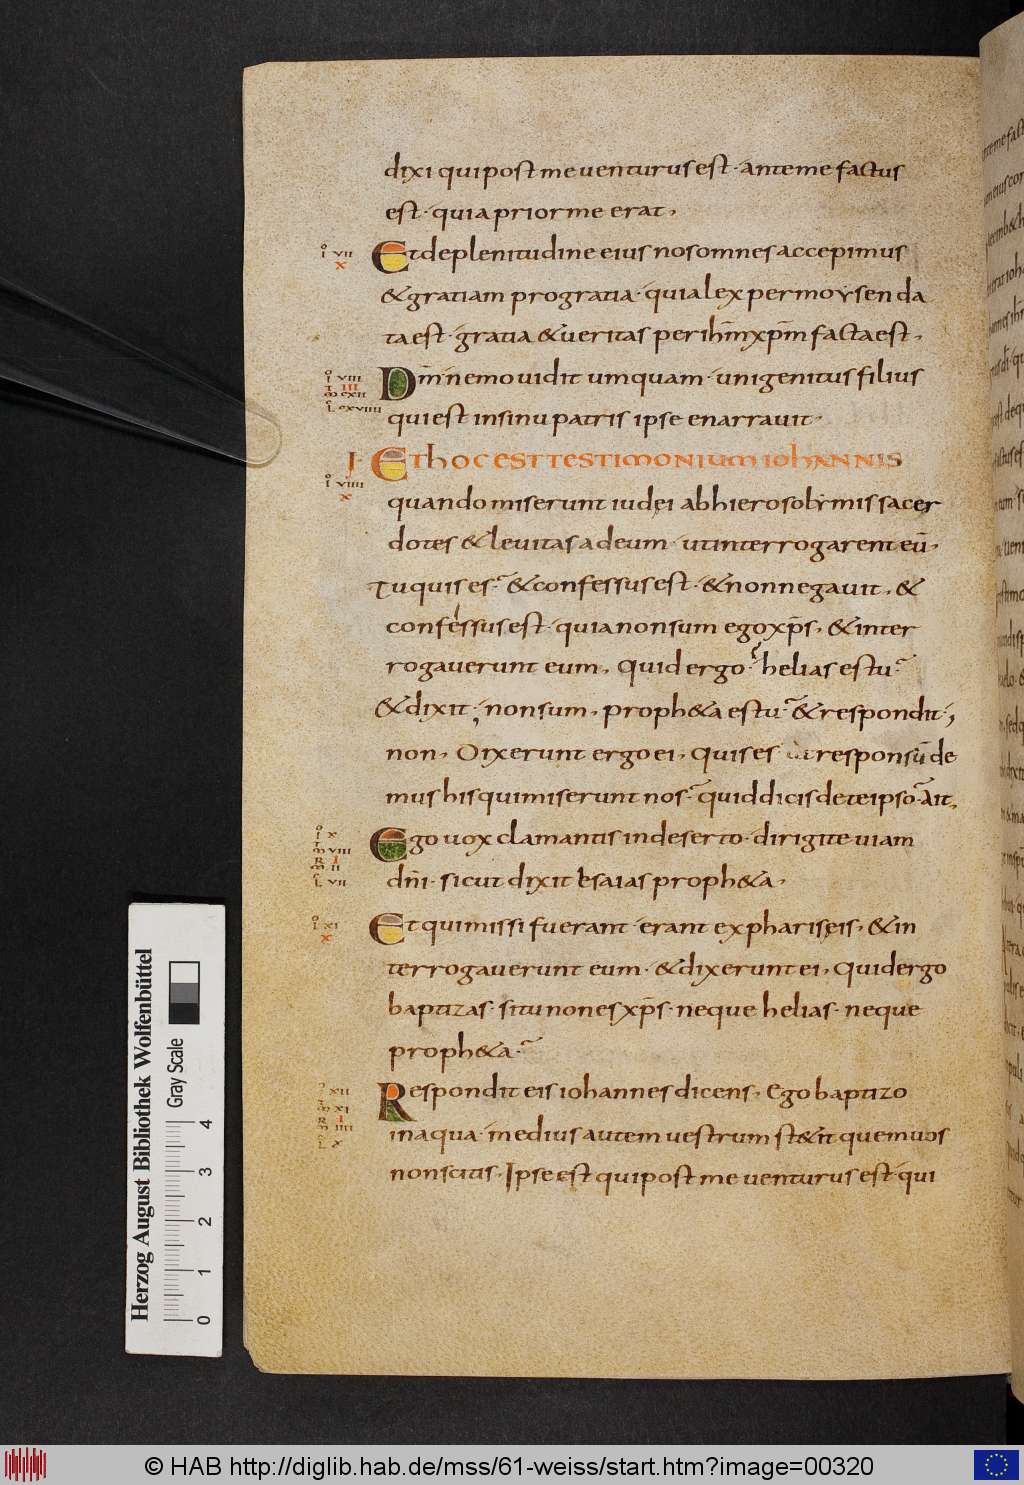 dixi qui post me uenturus est · ante me factus
est · quia prior me erat ,
Io VII Et de plenitudine eius nos omnes accepimus
X
& gratiam pro gratia · quia lex per moysen da
ta est · gratia & ueritas per ihm̄ xpm̄ facta est ,
Io VIII Dm̄ nemo uidit umquam · unigenitus filius
III
m CXII
L CXVIIII qui est in sinu patris ipse enarrauit ·
I · Et hoc est testimonium iohannis
Io VIIII quando miserunt iudęi ab hierosolymis sacer
X
dotes & leuitas ad eum · ut interrogarent eū ,
Tu quis es ? & confessus est · & non negauit , &
confessus est · quia non sum ego xp̄s , & inter
rogauerunt eum , Quid ergo ? helias es tu ?
& dixit ; non sum , proph&a es tu ? & respondit ;
non , Dixerunt ergo ei , Quis es ut responsū de
mus his qui miserunt nos ? quid dicis de te ipso ? Ait ,
Io X Ego uox clamantis in deserto · dirigite uiam
m VIII
R I
m II
L VII dn̄i · sicut dixit esaias proph&a ,
Io XI Et qui missi fuerant · erant ex pharisęis , & in
X
terrogauerunt eum · & dixerunt ei , Quid ergo
baptizas · si tu non es xp̄s · neque helias · neque
proph&a ?
XII Respondit eis iohannes dicens , Ego baptizo
m XI
R I
m IIII in aqua · medius autem uestrum st&it quem uos
L X
non scitis , Ipse est qui post me uenturus est · qui
Herzog August Bibliothek Wolfenbüttel
Gray Scale
0 1 2 3 4
© HAB http://diglib.hab.de/mss/61-weiss/start.htm?image=00320